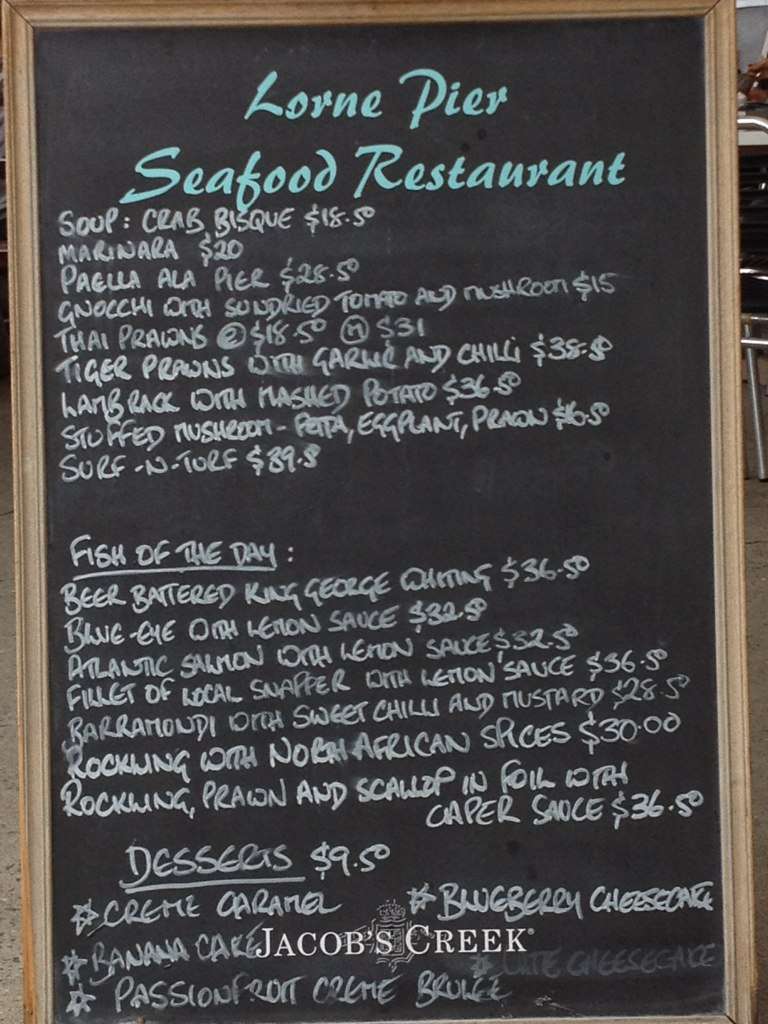 Lorne Pier
Seafood Restaurant
SOUP: CRAB BISQUE $18.50
MARINARA $20
PAELLA ALA PIER $28.50
GNOCCHI WITH SUNDRIED TOMATO AND MUSHROOM $15
THAI PRAWNS (E) $18.50 (M) $31
TIGER PRAWNS WITH GARLIC AND CHILLI $38.50
LAMB RACK WITH MASHED POTATO $36.50
STUFFED MUSHROOM - FETTA, EGGPLANT, PRAWN $16.50
SURF-N-TURF $39.50
FISH OF THE DAY:
BEER BATTERED KING GEORGE WHITING $36.50
BLUE-EYE WITH LEMON SAUCE $32.50
ATLANTIC SALMON WITH LEMON SAUCE $32.50
FILLET OF LOCAL SNAPPER WITH LEMON SAUCE $36.50
BARRAMONDI WITH SWEET CHILLI AND MUSTARD $28.50
ROCKLING WITH NORTH AFRICAN SPICES $30.00
ROCKLING, PRAWN AND SCALLOP IN FOIL WITH
CAPER SAUCE $36.50
DESSERTS $9.50
☆ CREME CARAMEL ☆ BLUEBERRY CHEESECAKE
☆ BANANA CAKE
JACOB'S CREEK®
CHEESECAKE
☆ PASSIONFRUIT CREME BRULEE